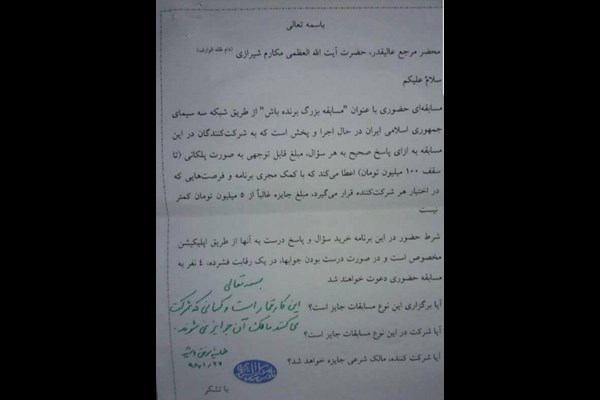 باسمه تعالی
محضر مرجع عالیقدر، حضرت آیت الله العظمی مکارم شیرازی (دام ظله الوارف)
سلامٌ علیکم
مسابقه‌ای حضوری با عنوان "مسابقه بزرگ برنده باش" از طریق شبکه سه سیمای
جمهوری اسلامی ایران در حال اجرا و پخش است که به شرکت‌کنندگان در این
مسابقه به ازای پاسخ صحیح به هر سؤال، مبلغ قابل توجهی به صورت پلکانی (تا
سقف ۱۰۰ میلیون تومان) اعطا می‌کند که با کمک مجری برنامه و فرصت‌هایی که
در اختیار هر شرکت‌کننده قرار می‌گیرد، مبلغ جایزه غالباً از ۵ میلیون تومان کمتر
نیست
شرط حضور در این برنامه خرید سؤال و پاسخ درست به آنها از طریق اپلیکیشن
مخصوص است و در صورت درست بودن جوابها، در یک رقابت فشرده، ٤ نفر به
مسابقه حضوری دعوت خواهند شد
آیا برگزاری این نوع مسابقات جایز است؟
آیا شرکت در این نوع مسابقات جایز است؟
آیا شرکت کننده، مالک شرعی جایزه خواهد شد؟
با تشکر
بسمه تعالی
این کار قمار است و کسانی که شرکت
می کنند مالک آن جوایز نمی شوند.
همیشه موفق باشید